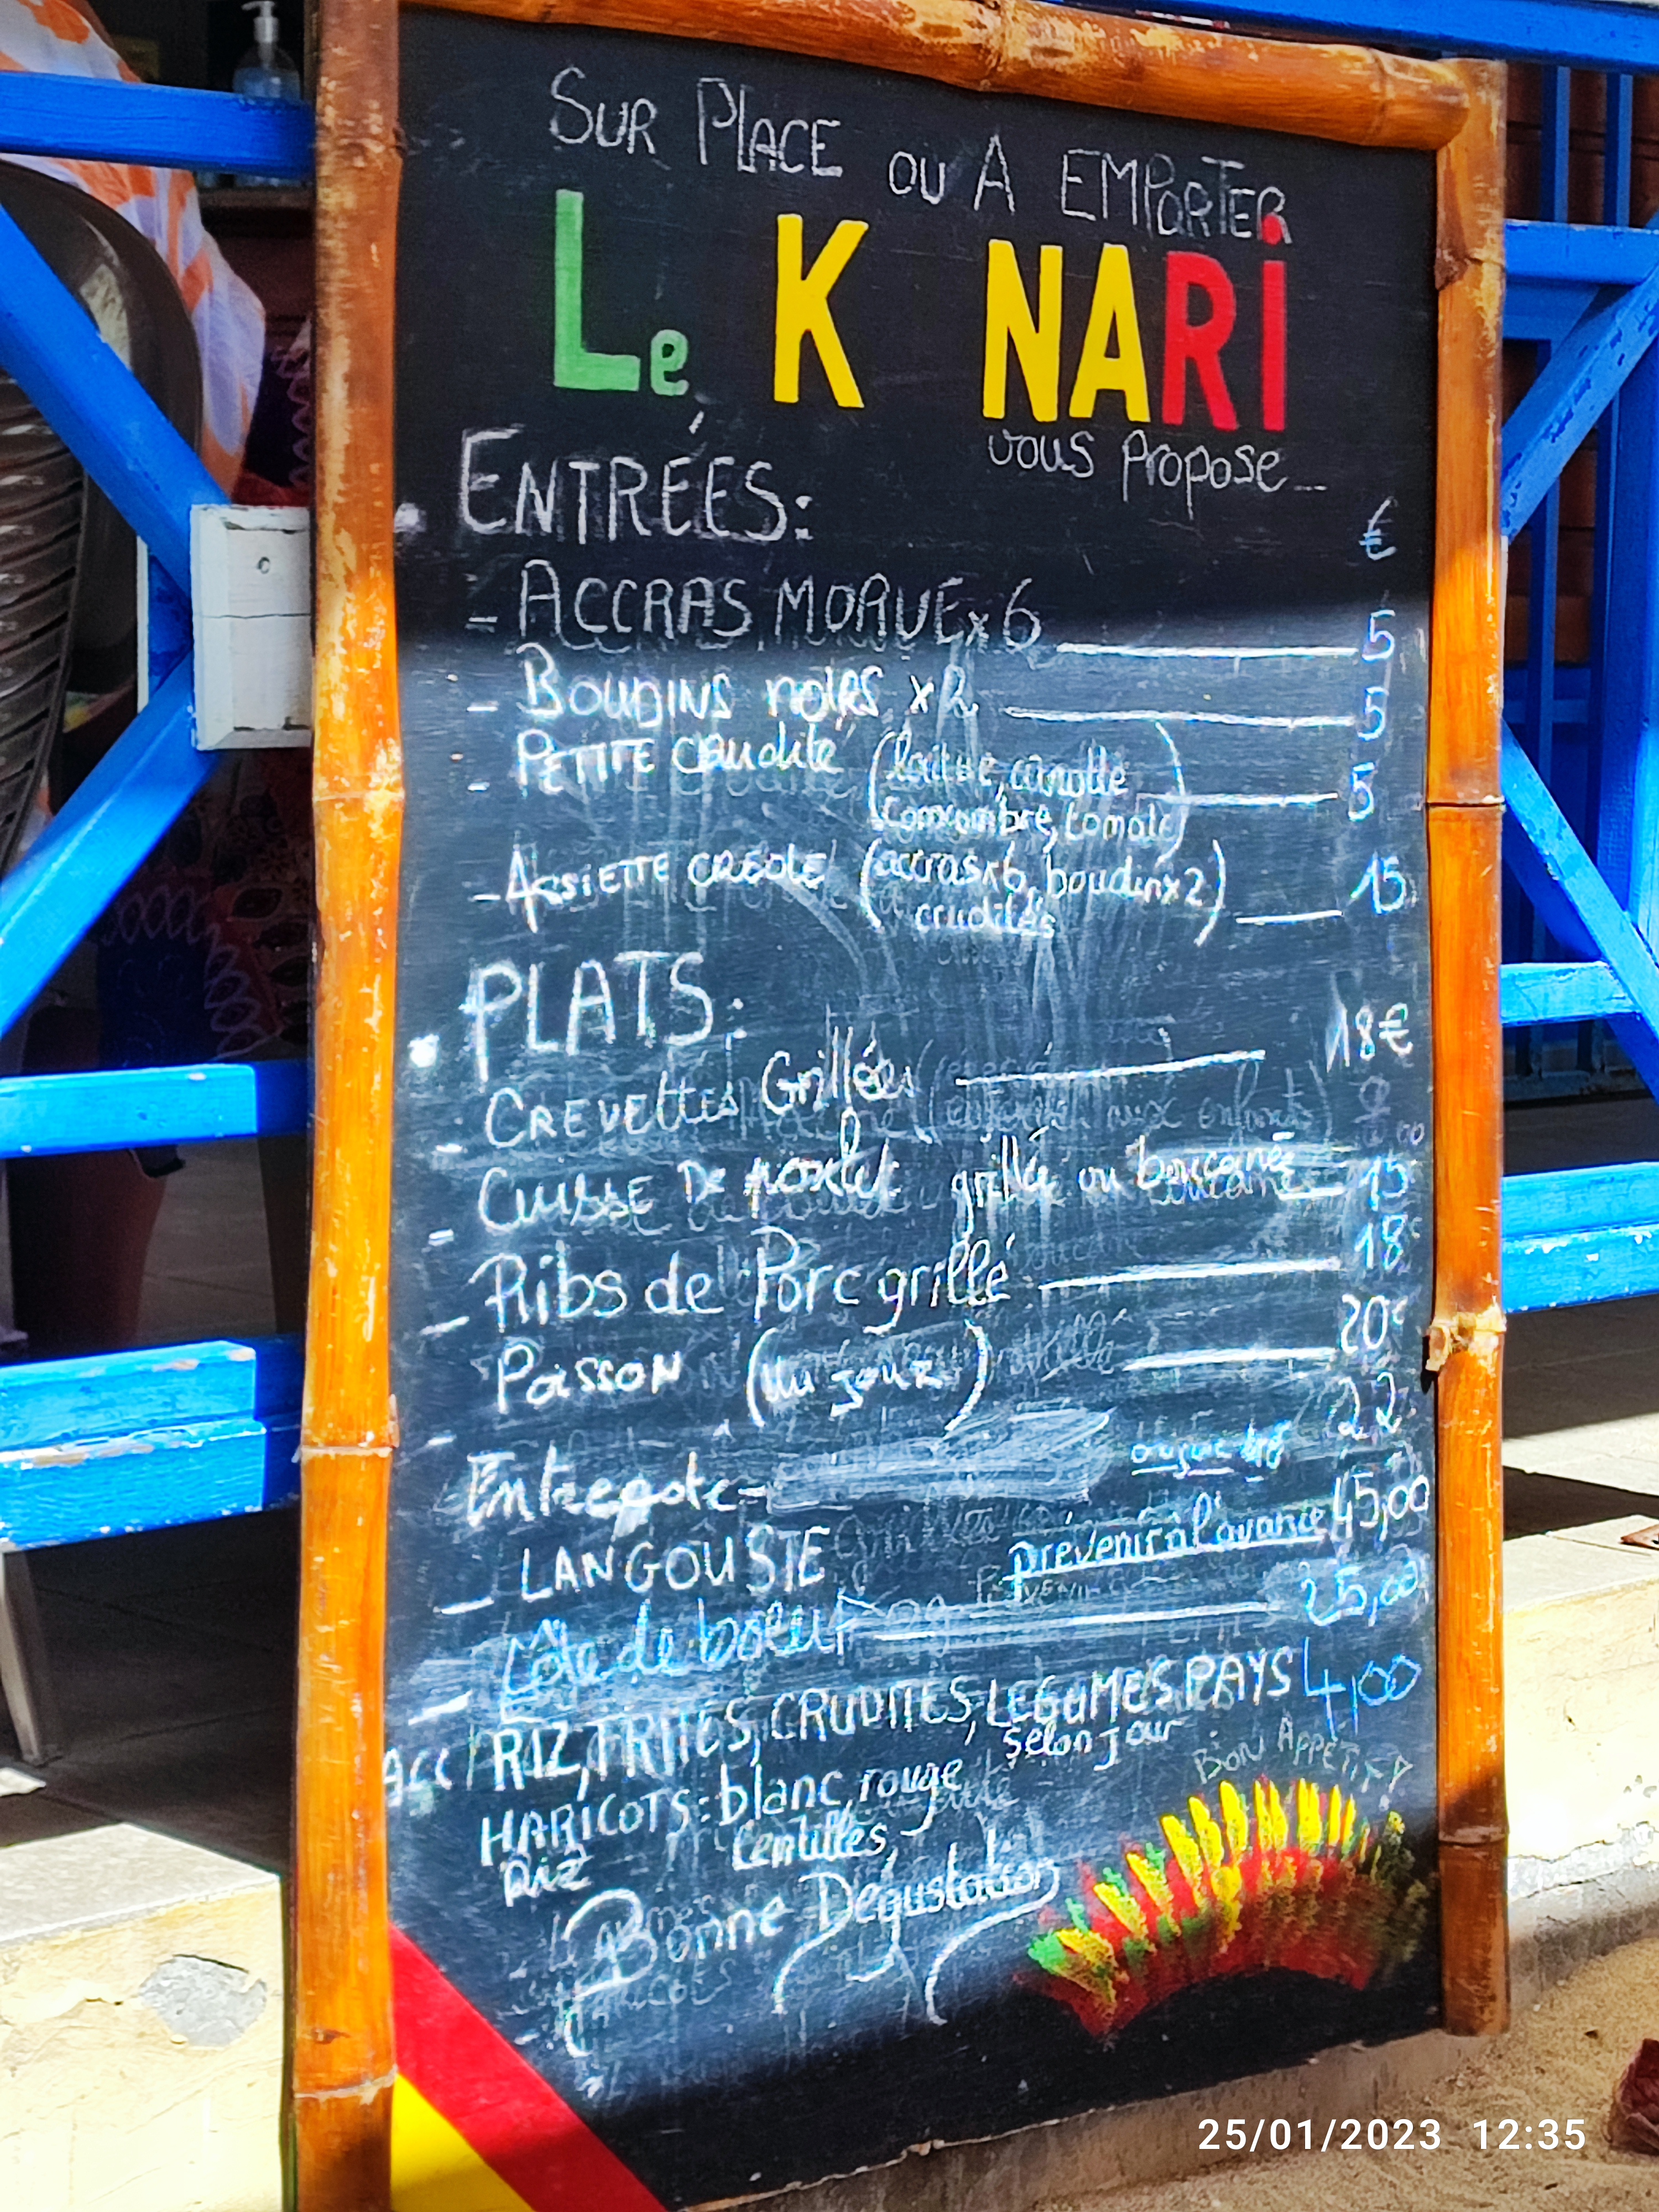 SUR PLACE OU A EMPORTER
Le K NARi
vous propose
ENTRÉES: €
- ACCRAS MORUE x 6 5
- BOUDINS noiRS x 2 5
- PETITE CRudité (laitue, carotte 5
concombre, tomate)
- ASSiETTE CREOLE (accrasx6, boudinx2) 15
crudités
• PLATS: 18€
- CREVettes Grillées
- CUISSE De poulet grillé ou boucané 15
- Ribs de Porc grillé 18€
Poisson (du jour) 20€
- Entrecote 22
- LANGOUSTE prévenir à l'avance 45,00
- Côte de boeuf 25,00
ACC/ RIZ, FRITES, CRUDITES, LEGUMES PAYS 4,00
selon jour
HARiCOTS: blanc, rouge BON APPÉTIT
Lentilles,
Riz
Bonne Dégustation
25/01/2023 12:35